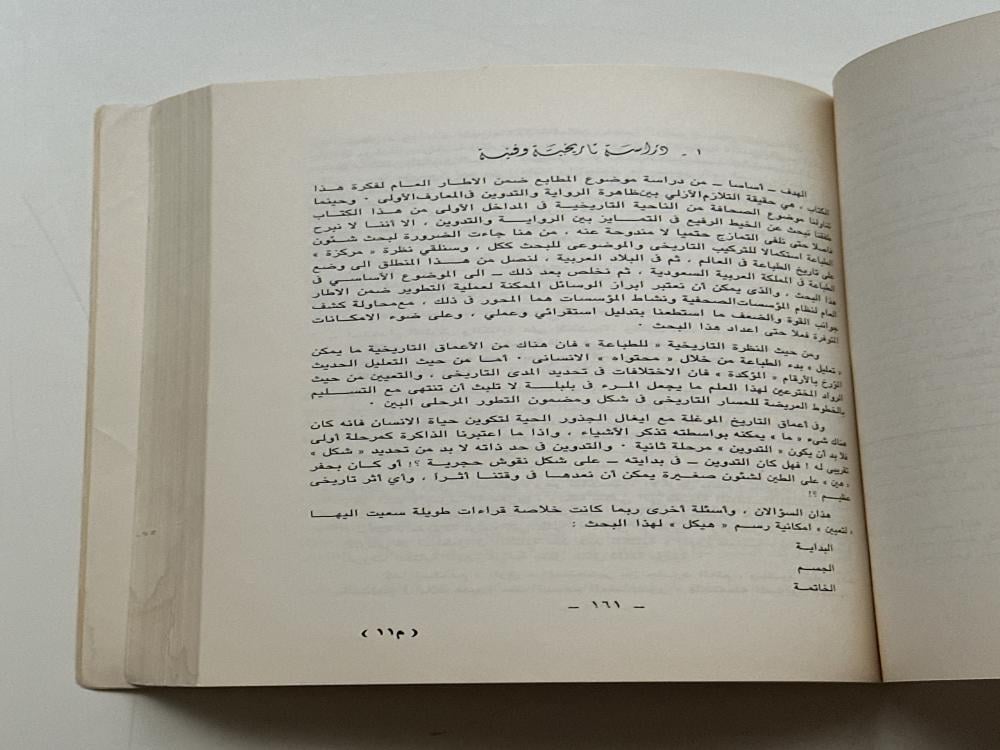 ١ - دراسة تاريخية وفنية
الهدف - أساسا - من دراسة موضوع المطابع ضمن الاطار العام لفكرة هذا
الكتاب ، هي حقيقة التلازم الأزلي بين ظاهرة الرواية والتدوين في المعارف الأولى . وحينما
تناولنا موضوع الصحافة من الناحية التاريخية في المداخل الأولى من هذا الكتاب
نبحث عن الخيط الرفيع في التمايز بين الرواية والتدوين ، الا أننا لا نبرح
فاصلا حتى تلفى التمازج حتميا لا مندوحة عنه ، من هنا جاءت الضرورة لبحث شئون
الطباعة استكمالا للتركيب التاريخى والموضوعى للبحث ككل ، وسنلقي نظرة « مركزة »
على تاريخ الطباعة في العالم ، ثم في البلاد العربية ، لنصل من هذا المنطلق الى وضع
الطباعة في المملكة العربية السعودية ، ثم نخلص بعد ذلك - الى الموضوع الأساسي في
هذا البحث ، والذى يمكن أن نعتبر ابراز الوسائل الممكنة لعملية التطوير ضمن الاطار
العام لنظام المؤسسات الصحفية ونشاط المؤسسات هما المحور في ذلك ، مع محاولة كشف
جوانب القوة والضعف ما استطعنا بتدليل استقرائي وعملي ، وعلى ضوء الامكانات
المتوفرة فعلا حتى اعداد هذا البحث .
ومن حيث النظرة التاريخية « للطباعة » فان هناك من الأعماق التاريخية ما يمكن
« تعليل » بدء الطباعة من خلال « محتواه » الانسانى . أما من حيث التعليل الحديث
المؤرخ بالأرقام « المؤكدة » فان الاختلافات في تحديد المدى التاريخى ، والتعيين من حيث
الرواد المخترعين لهذا العلم ما يجعل المرء في بلبلة لا تلبث أن تنتهى مع التسليم
بالخطوط العريضة للمسار التاريخى في شكل ومضمون التطور المرحلى البين .
وفى أعماق التاريخ الموغلة مع ايغال الجذور الحية لتكوين حياة الانسان فانه كان
هناك شىء « ما » يمكنه بواسطته تذكر الأشياء ، واذا ما اعتبرنا الذاكرة كمرحلة أولى
فلا بد أن يكون « التدوين » مرحلة ثانية . والتدوين في حد ذاته لا بد من تحديد « شكل »
تقريبى له ! فهل كان التدوين - في بدايته - على شكل نقوش حجرية ؟! أو كان بحفر
« هين » على الطين لشئون صغيرة يمكن أن نعدها في وقتنا أثرا ، وأي أثر تاريخى
عظيم ؟!
هذان السؤالان ، وأسئلة أخرى ربما كانت خلاصة قراءات طويلة سعيت اليها
« لتعيين » امكانية رسم « هيكل » لهذا البحث :
البداية
الجسم
الخاتمة
- ١٦١ -
( م١١ )